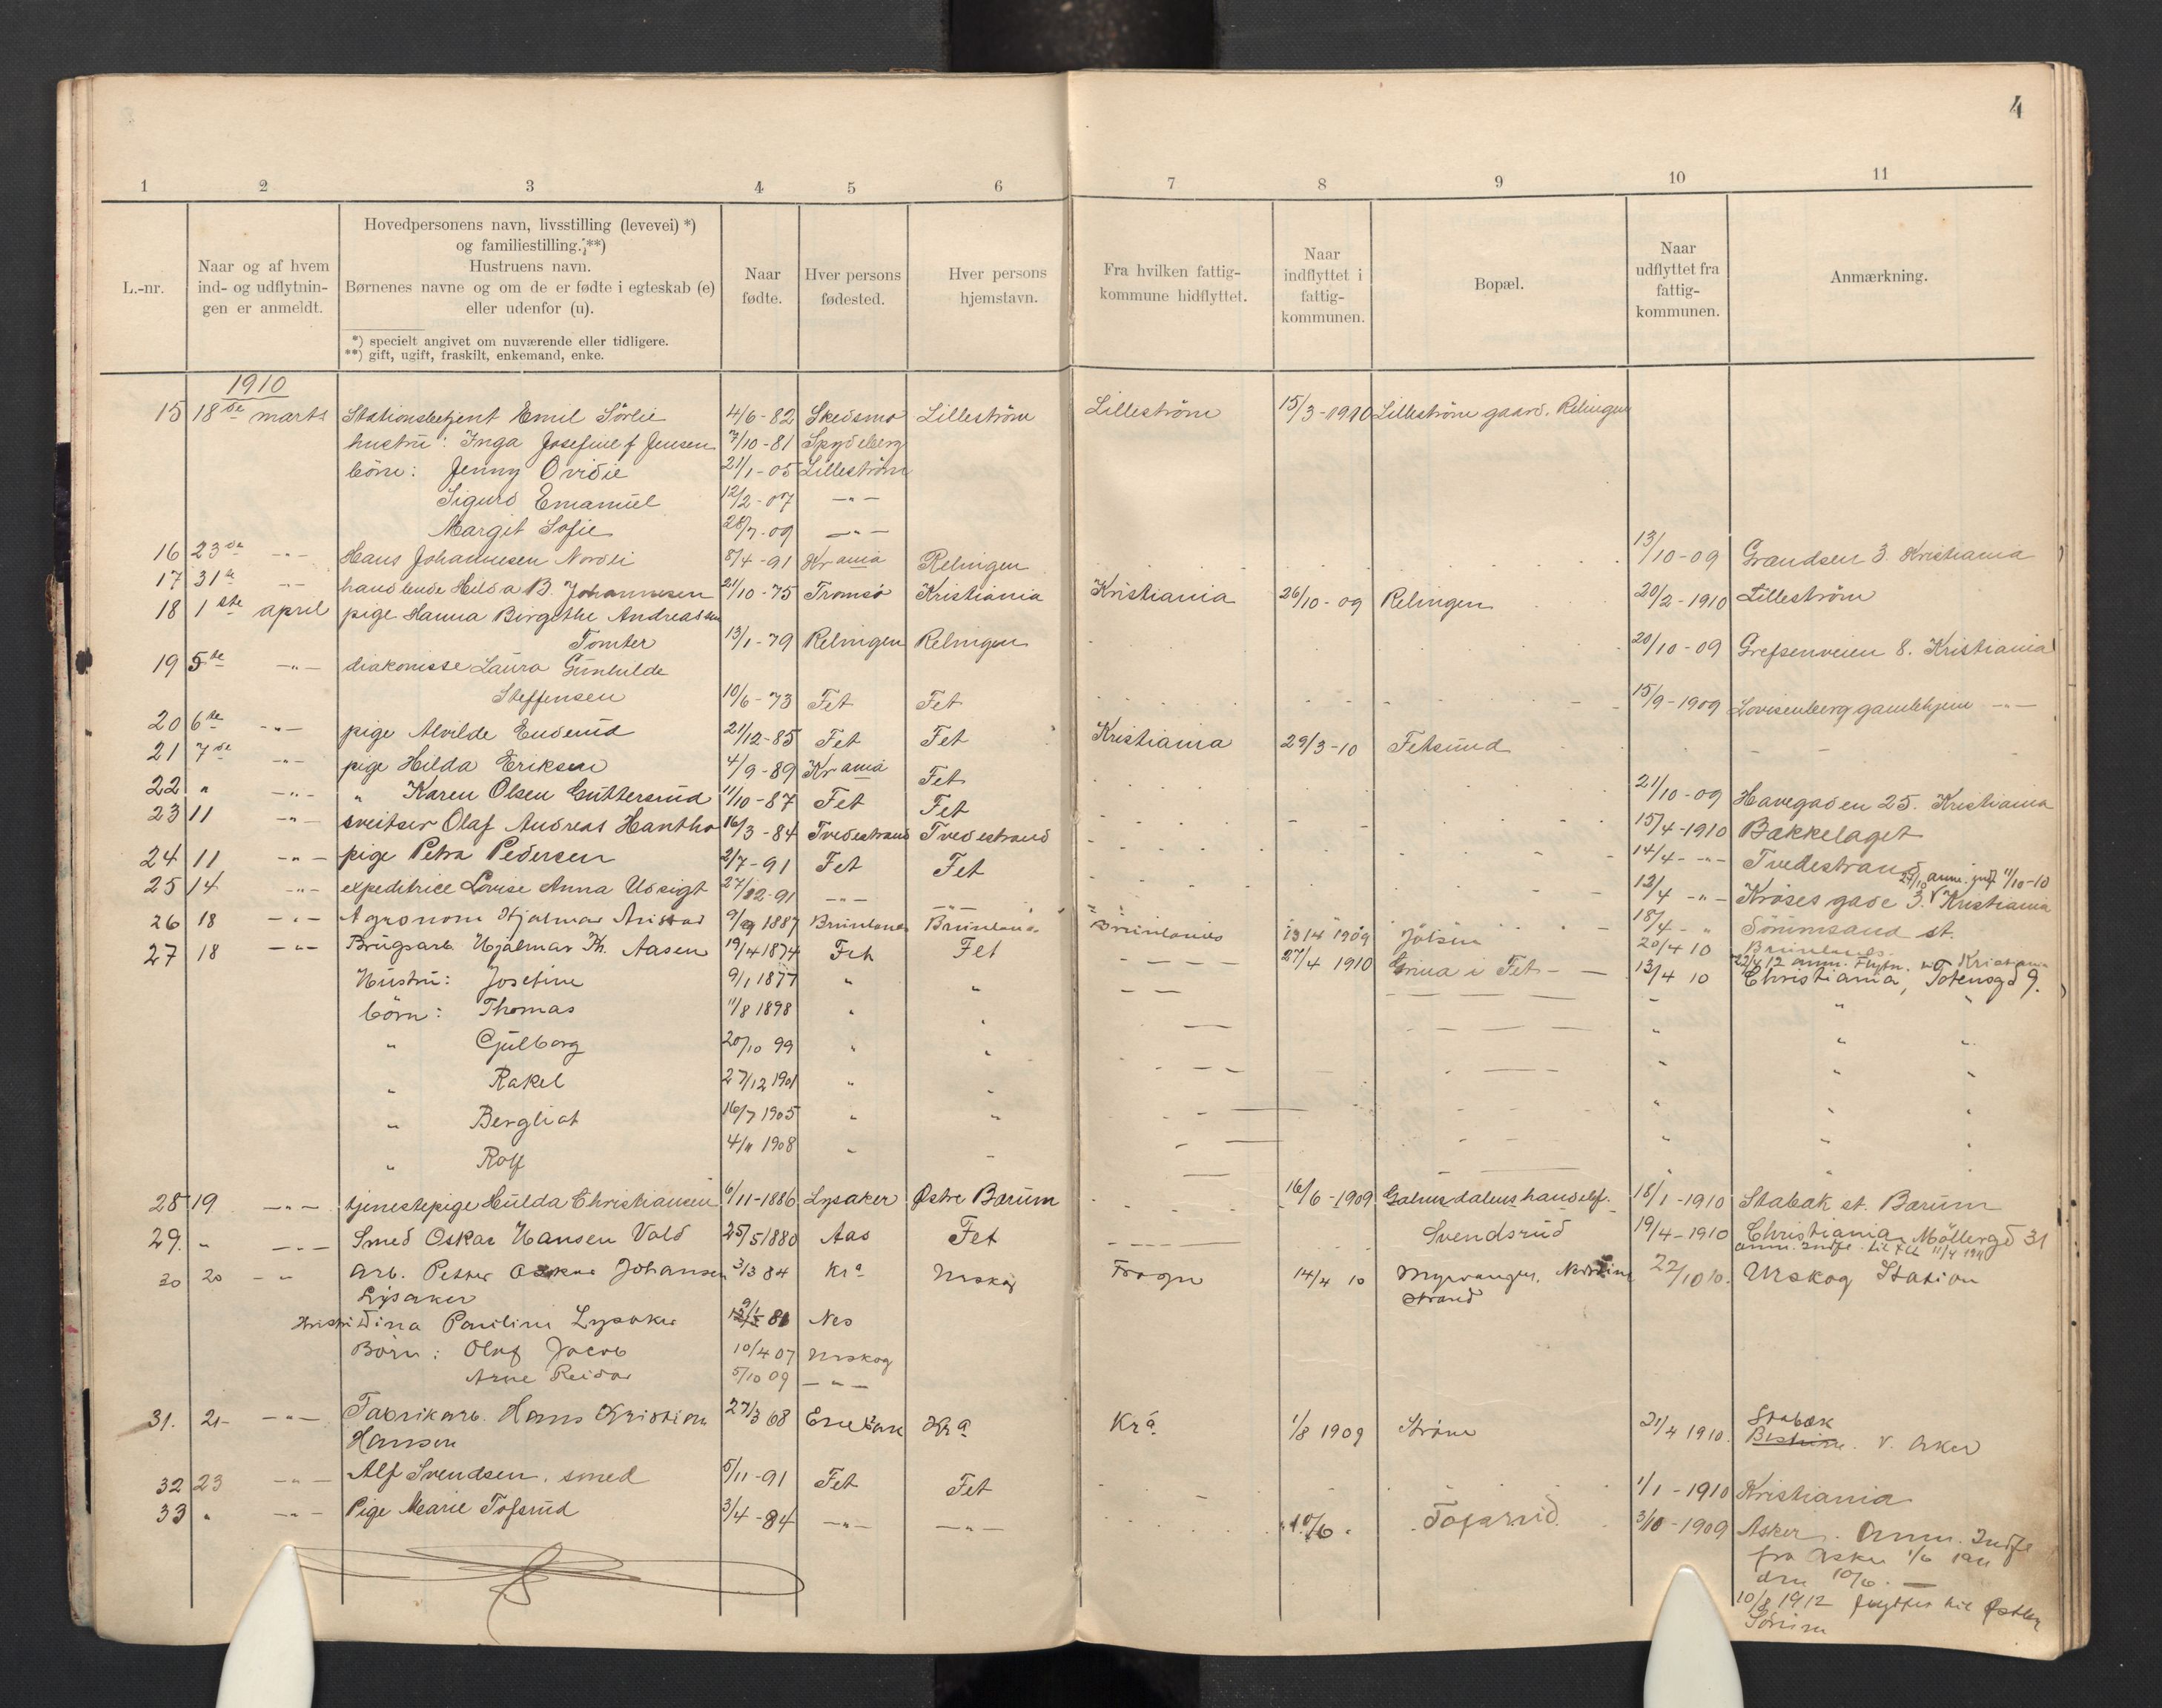 4
1 2 3 4 5 6 7 8 9 10 11
L.-nr.
Naar og af hvem
ind- og udflytnin-
gen er anmeldt.
Hovedpersonens navn, livsstilling (levevei) *)
og familiestilling. **)
Hustruens navn.
Børnenes navne og om de er fødte i egteskab (e)
eller udenfor (u).
*) specielt angivet om nuværende eller tidligere.
**) gift, ugift, fraskilt, enkemand, enke.
Naar
fødte.
Hver persons
fødested.
Hver persons
hjemstavn.
Fra hvilken fattig-
kommune hidflyttet.
Naar
indflyttet i
fattig-
kommunen.
Bopæl.
Naar
udflyttet fra
fattig-
kommunen.
Anmærkning.
1910
15 18de marts Stationsbetjent Emil Sörlie 4/6-82 Skedsmo Lilleström Lilleström 15/3-1910 Lilleström gaard. Relingen
hustru: Inga Josefine f Jensen 7/10-81 Spydeberg
börn: Jenny Ovidie 21/1-05 Lilleström
Sigurd Emanuel 12/2-07 -"-
Margit Sofie 28/7-09 -"-
16 23de -"- Hans Johannesen Nordli 8/4-91 Krania Relingen 13/10-09 Grændsen 3 Kristiania
17 31te -"- handlende Hilda B. Johannesen 21/10-75 Tromsö Kristiania Kristiania 26/10-09 Relingen 20/2-1910 Lilleström
18 1ste april pige Hanna Birgithe Andreassen
Tomter 13/1-79 Relingen Relingen 20/10-09 Grefsenveien 8. Kristiania
19 5te -"- diakonisse Laura Gunhilde
Steffensen 10/6-73 Fet Fet 15/9-1909 Lovisenberg gamlehjem -"-
20 6te -"- pige Alvilde Enderud 21/12-85 Fet Fet Kristiania 29/3-10 Fetsund
21 7de -"- pige Hilda Eriksen 4/9-89 Krania Fet 21/10-09 Havegaden 25. Kristiania
22 " -"- " Karen Olsen Guttersrud 11/10-87 Fet Fet 15/4-1910 Bækkelaget
23 11 -"- sveitser Olaf Andreas Hantho 16/3-84 Tvedestrand Tvedestrand 14/4- -"- Tvedestrand
24 11 -"- pige Petra Pedersen 2/7-91 Fet Fet 12/4 -"- Krøses gade 3. Kristiania
25 14 -"- expeditrice Lovise Anna Udsigt 27/12-91 -"- -"- 18/4 - " Sörumsand st.
26 18 -"- Agronom Hjalmar 9/9 1887 Brunlanes Brunlanes Brunlanes 1909 Jölsen 20/4 10 Brunlanes
27 18 -"- Brugsarb. Hjalmar Th. Aasen 19/4 1874 Fet Fet 27/4 1910 Grina i Fet 13/4 10 Christiania, Totensgd 9.
Hustru: Josefine 9/1 1877 " "
börn: Thomas 11/8 1898 " "
" Gjulborg 20/10 99 " "
" Rakel 27/12 1901 " "
" Bergliot 16/7 1905 " "
" Rolf 4/11 1908 " "
28 19 -"- tjenestepige Hulda Christiansen 6/11-1886 Lysaker Østre Bærum 16/6-1909 Galhusdalens handelsf. 18/1-1910 Stabæk st. Bærum
29. " -"- Smed Oskar Hansen Vold 25/5 1880 Aas Fet Svendsrud 19/4-1910 Christiania Möllergd 31
30 20 -"- Arb. Petter Oskar Johansen 3/3 84 Kra Urskog Frogn 14/4 10 22/10 10. Urskog Station
Lysaker Strand
Hustru Dina Pauline Lysaker 81 Nes
Börn: Olaf Jacob 10/4 07 Urskog
Arne Reidar 5/10 09 -"-
31. 21 -"- Fabrikarb. Hans Kristian 27/3 68 Enebak Kra Kra 1/8 1909 Ström 21/4 1910. Stabæk
Hansen V. Aker
32 23 -"- Alf Svendsen, smed 5/11-91 Fet Fet 1/1-1910 Kristiania
33 " -"- Pige Marie Tofsrud 3/4-84 -"- -"- 10/6 Tofsrud 3/10-1909 Asker. Anm. Indfl
fra Asker 1/6 1911
den 10/6. —
10/8 1912 flyttet til Østby
Sörum